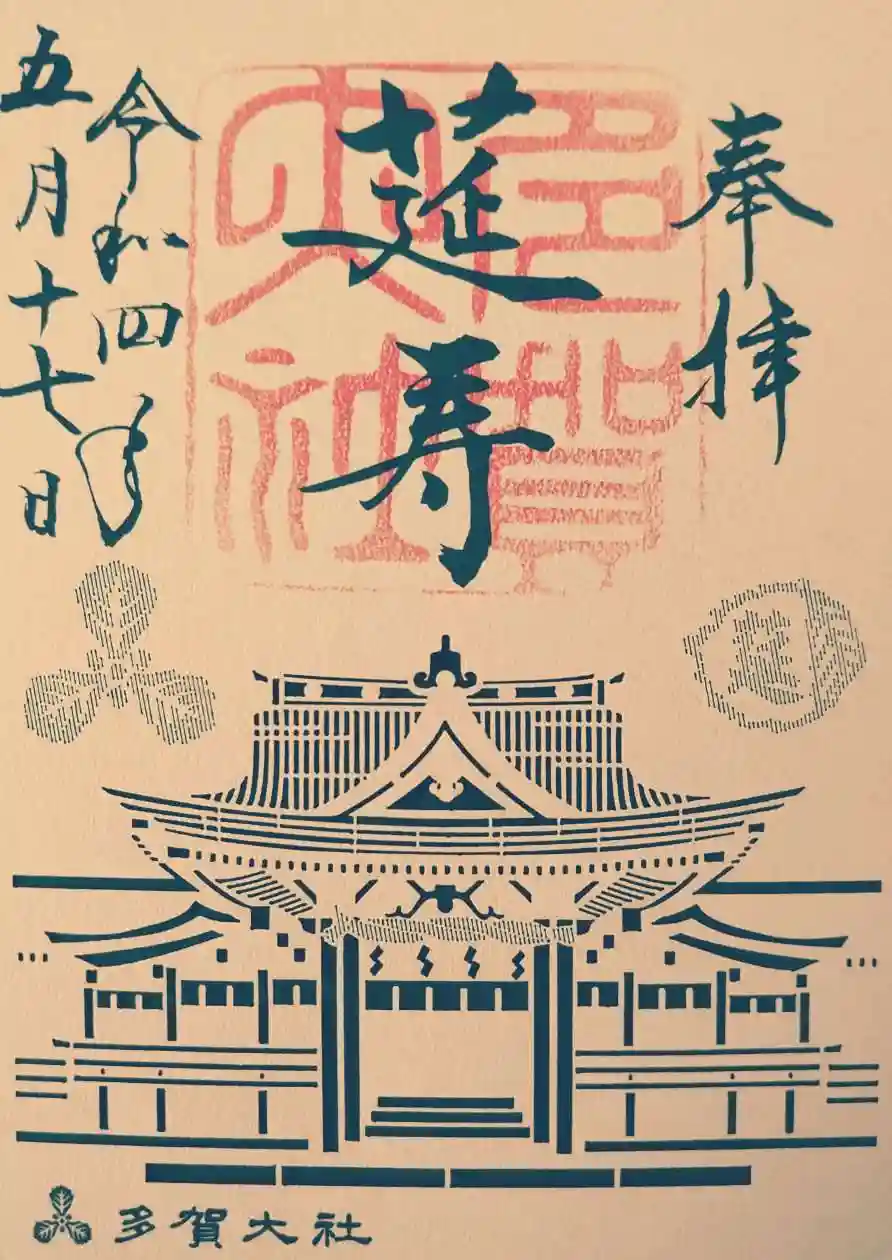 奉拝
莚寿
多賀
大社
令和四年
五月十七日
多賀大社